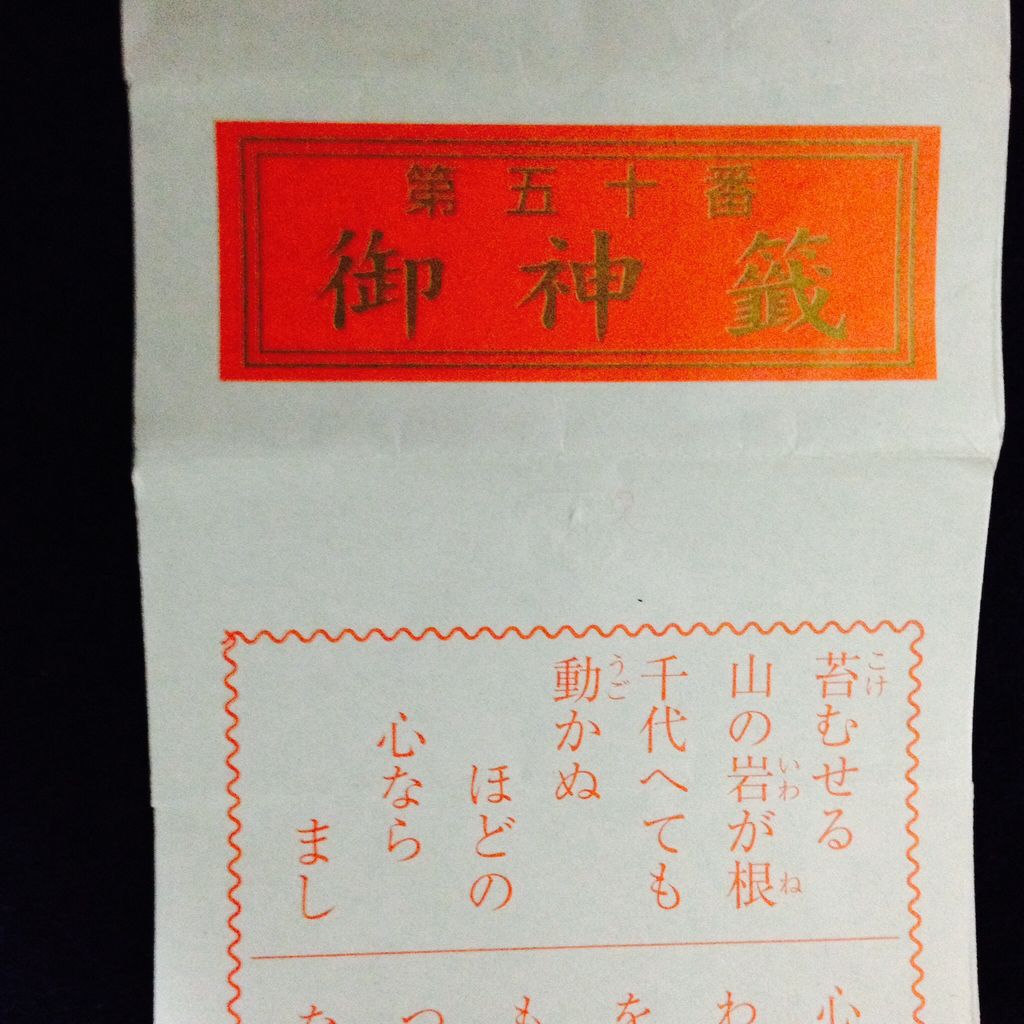 第五十番
御神籤
苔むせる
山の岩が根
千代へても
動かぬ
ほどの
心なら
まし
こけ
いわ
ね
うご
心
わ
を
も
つ
な